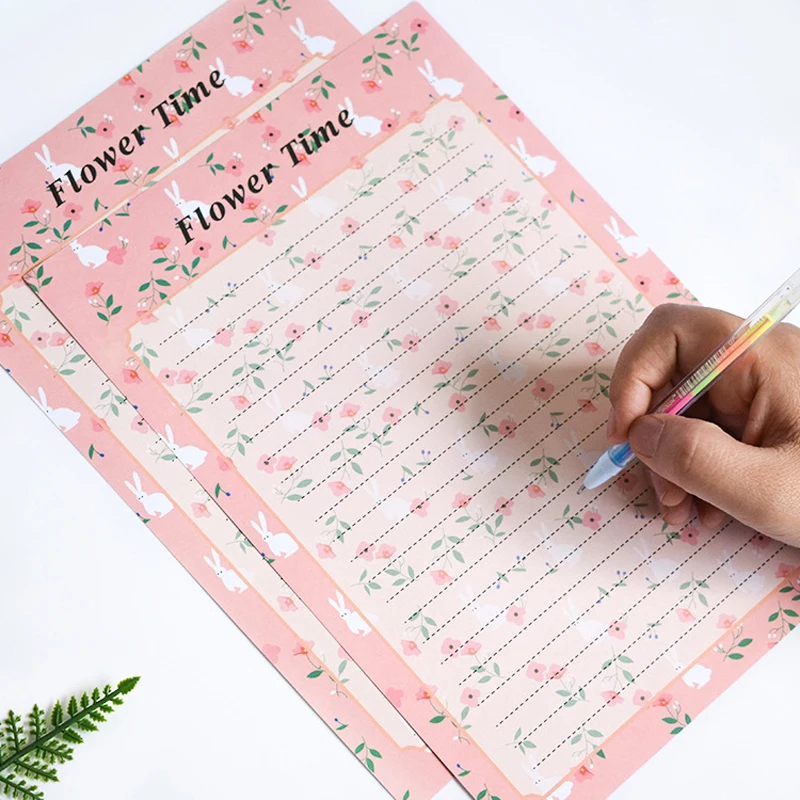 Flower Time
Flower Time